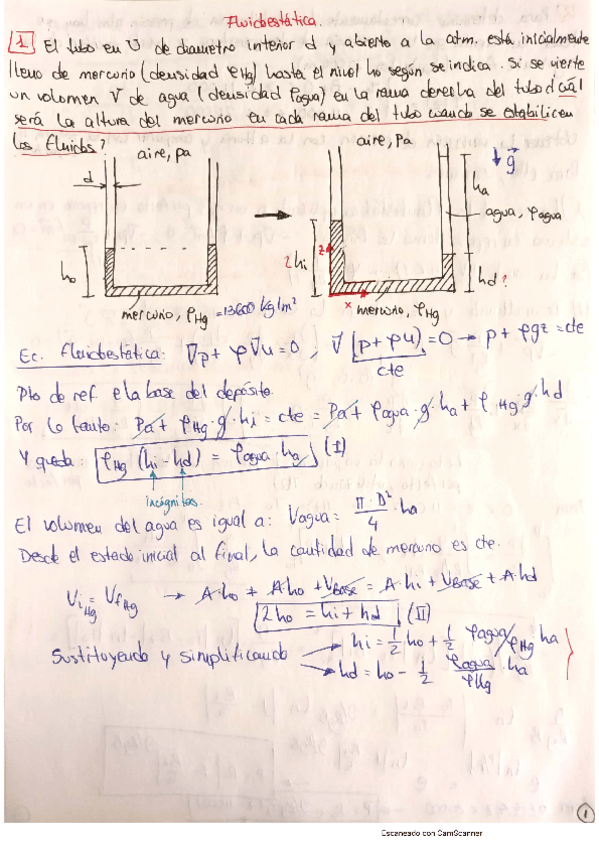 Fluidoestática.
1 El tubo en U de diametro interior d y abierto a la atm. está inicialmente
lleno de mercurio (densidad ρHg) hasta el nivel ho según se indica. Si se vierte
un volumen V de agua (densidad ρagua) en la rama derecha del tubo ¿cuál
será la altura del mercurio en cada rama del tubo cuando se estabilicen
los fluidos?
aire, Pa
aire, Pa
g
d
ha
agua, ρagua
ho
z
hi
hd?
x
mercurio, ρHg = 13600 kg/m³
mercurio, ρHg
Ec. Fluidoestática: ∇p + ρ∇u = 0, ∇(p + ρu) = 0 → p + ρgz = cte
cte
Pto de ref. e la base del depósito.
Por lo tanto: Pa + ρHg · g · hi = cte = Pa + ρagua · g · ha + ρHg g · hd
Y queda: ρHg (hi - hd) = ρagua · ha (I)
incógnitas.
El volumen del agua es igual a: Vagua = π · D²/4 · ha
Desde el estado inicial al final, la cantidad de mercurio es cte.
ViHg = VfHg → A·ho + A·ho + VBASE = A·hi + VBASE + A·hd
2ho = hi + hd (II)
Sustituyendo y simplificando
hi = 1/2 ho + 1/2 ρagua/ρHg ha
hd = ho - 1/2 ρagua/ρHg · ha
1
Escaneado con CamScanner